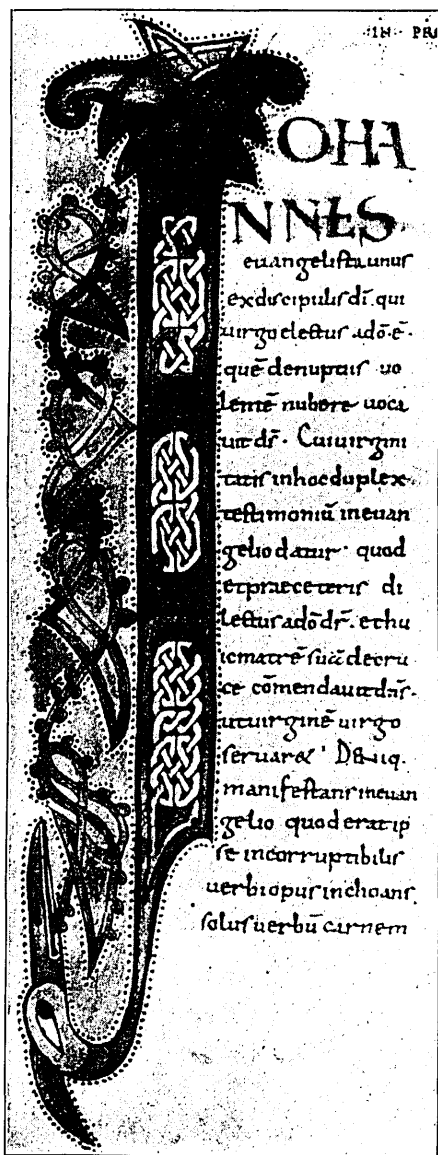 ·IN· PRA
OHA
NNES
euangelista unus
ex discipulis dī qui
uirgo electus adō ē·
quē denuptiis uo
lentē nubere uoca
uit ds̄· Cui uirgini
tatis inhoc duplex
testimoniū ineuan
gelio datur· quod
et prae ceteris di
lectus adō dr̄· et hu
ic matrē suā decru
ce cōmendauit dn̄s·
ut uirginē uirgo
seruar&· Deniq·
manifestans ineuan
gelio quod erat ip
se incorruptibilis
uerbi opus inchoans
solus uerbū carnem